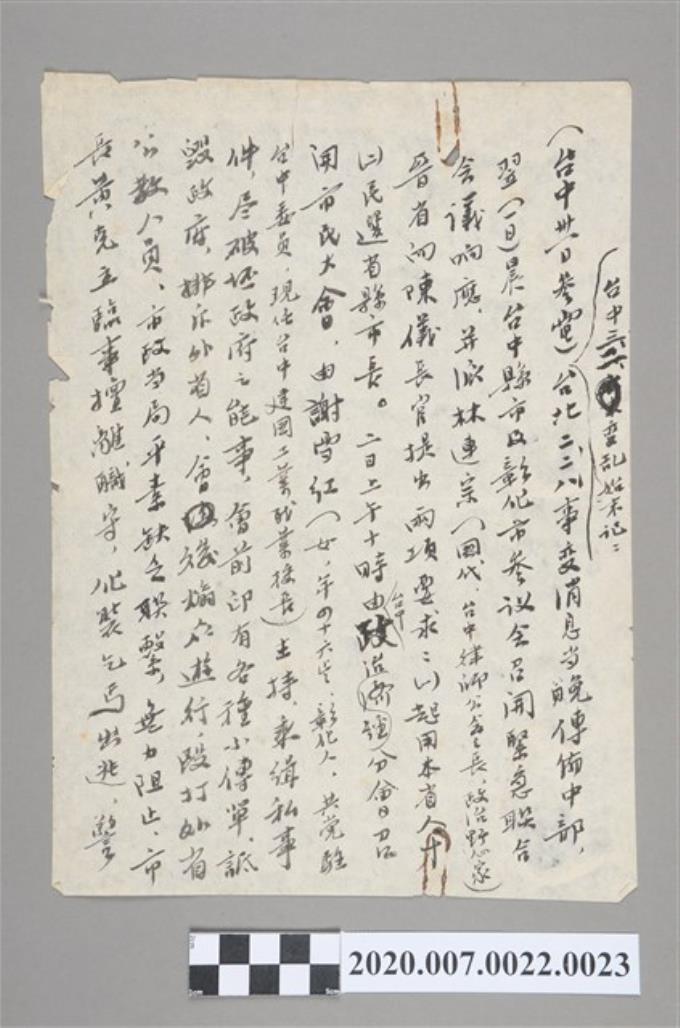 台中三二事變亂始末記：
（台中卅一日參電）台北二二八事変消息当晚傳佈中部，
翌（一日）晨台中縣市及彰化市參议会召開緊急联合
会議响應，并派林連宗（国代，台中律師公会会長，政治野心家）
晉省向陳儀長官提出兩項要求：(1)起用本省人才
(2)民選省縣市長。二日上午十時由台中政治建設分會召
開市民大會，由謝雪紅（女，年四十六岁，彰化人，共党駐
台中委員，現任台中建国工業職業校長）主持，乘緝私事
件，尽破坏政府之能事，會前即有各種小傳單，詆
毀政府，排斥外省人，會後煽众遊行，毆打外省
公教人員，市政当局平素缺乏联繫，無力阻止，市
長黃克立臨事擅離職守，化裝乞丐出逃，警
2020.007.0022.0023